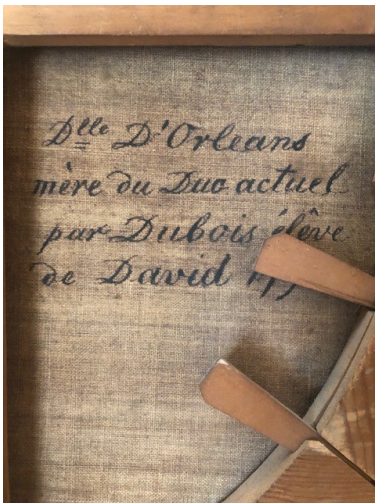 Dlle D'Orleans
mère du Duc actuel
par Dubois élêve
de David